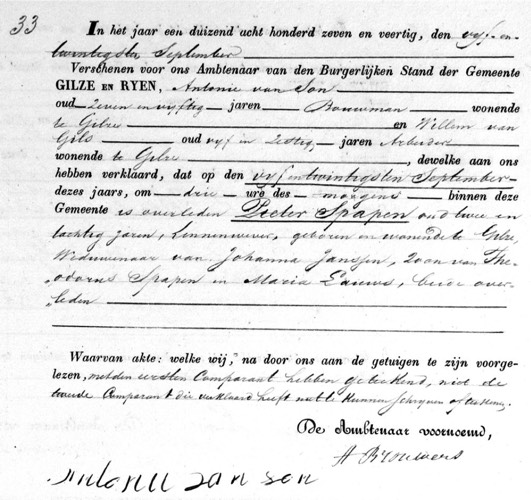 33
In het jaar een duizend acht honderd zeven en veertig, den vyf en
twintigsten September
Verschenen voor ons Ambtenaar van den Burgerlijken Stand der Gemeente
GILZE EN RYEN, Antonie van Son
oud zeven en vyftig jaren Bouwman wonende
te Gilze en Willem van
Gils oud vyf in zestig jaren Arbeider
wonende te Gilze, dewelke aan ons
hebben verklaard, dat op den vyf en twintigsten September
dezes jaars, om drie ure des morgens binnen deze
Gemeente is overleden Peeter Spapen oud twee en
tachtig jaren, Linnenwever, geboren en wonende te Gilze,
Weduwenaar van Johanna Janssen, Zoon van The-
odorus Spapen en Maria Lauws, beide over-
leden
Waarvan akte: welke wij, na door ons aan de getuigen te zijn voorge-
lezen, met den eersten Comparant hebben geteekend, niet de
tweede Comparant die verklaard heeft niet te kunnen schryven of teekenen.
De Ambtenaar voornoemd,
A Brouwers
Antonie van son